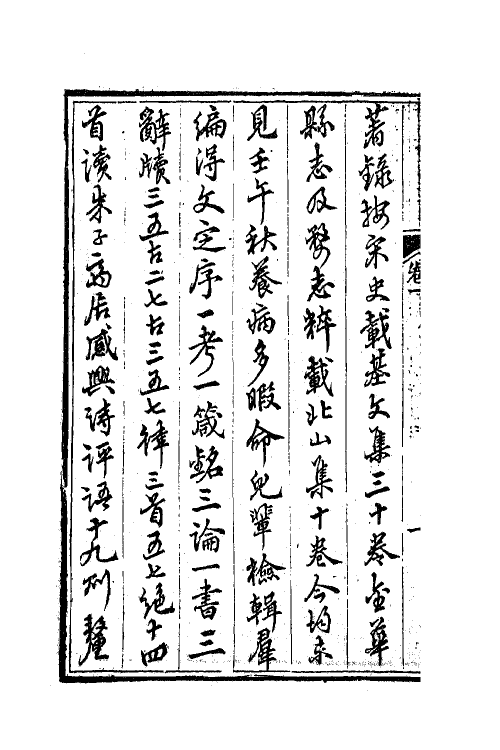 著錄按宋史載基文集三十卷金華
縣志及婺志粹載北山集十卷今均未
見壬午秋養病多暇命兒輩檢輯羣
編得文定序一考一箴銘三論一書三
辭牘三五古二七古三五七律三首五七絕十四
首讀朱子齋居感興詩評語十九則釐
卷一
一